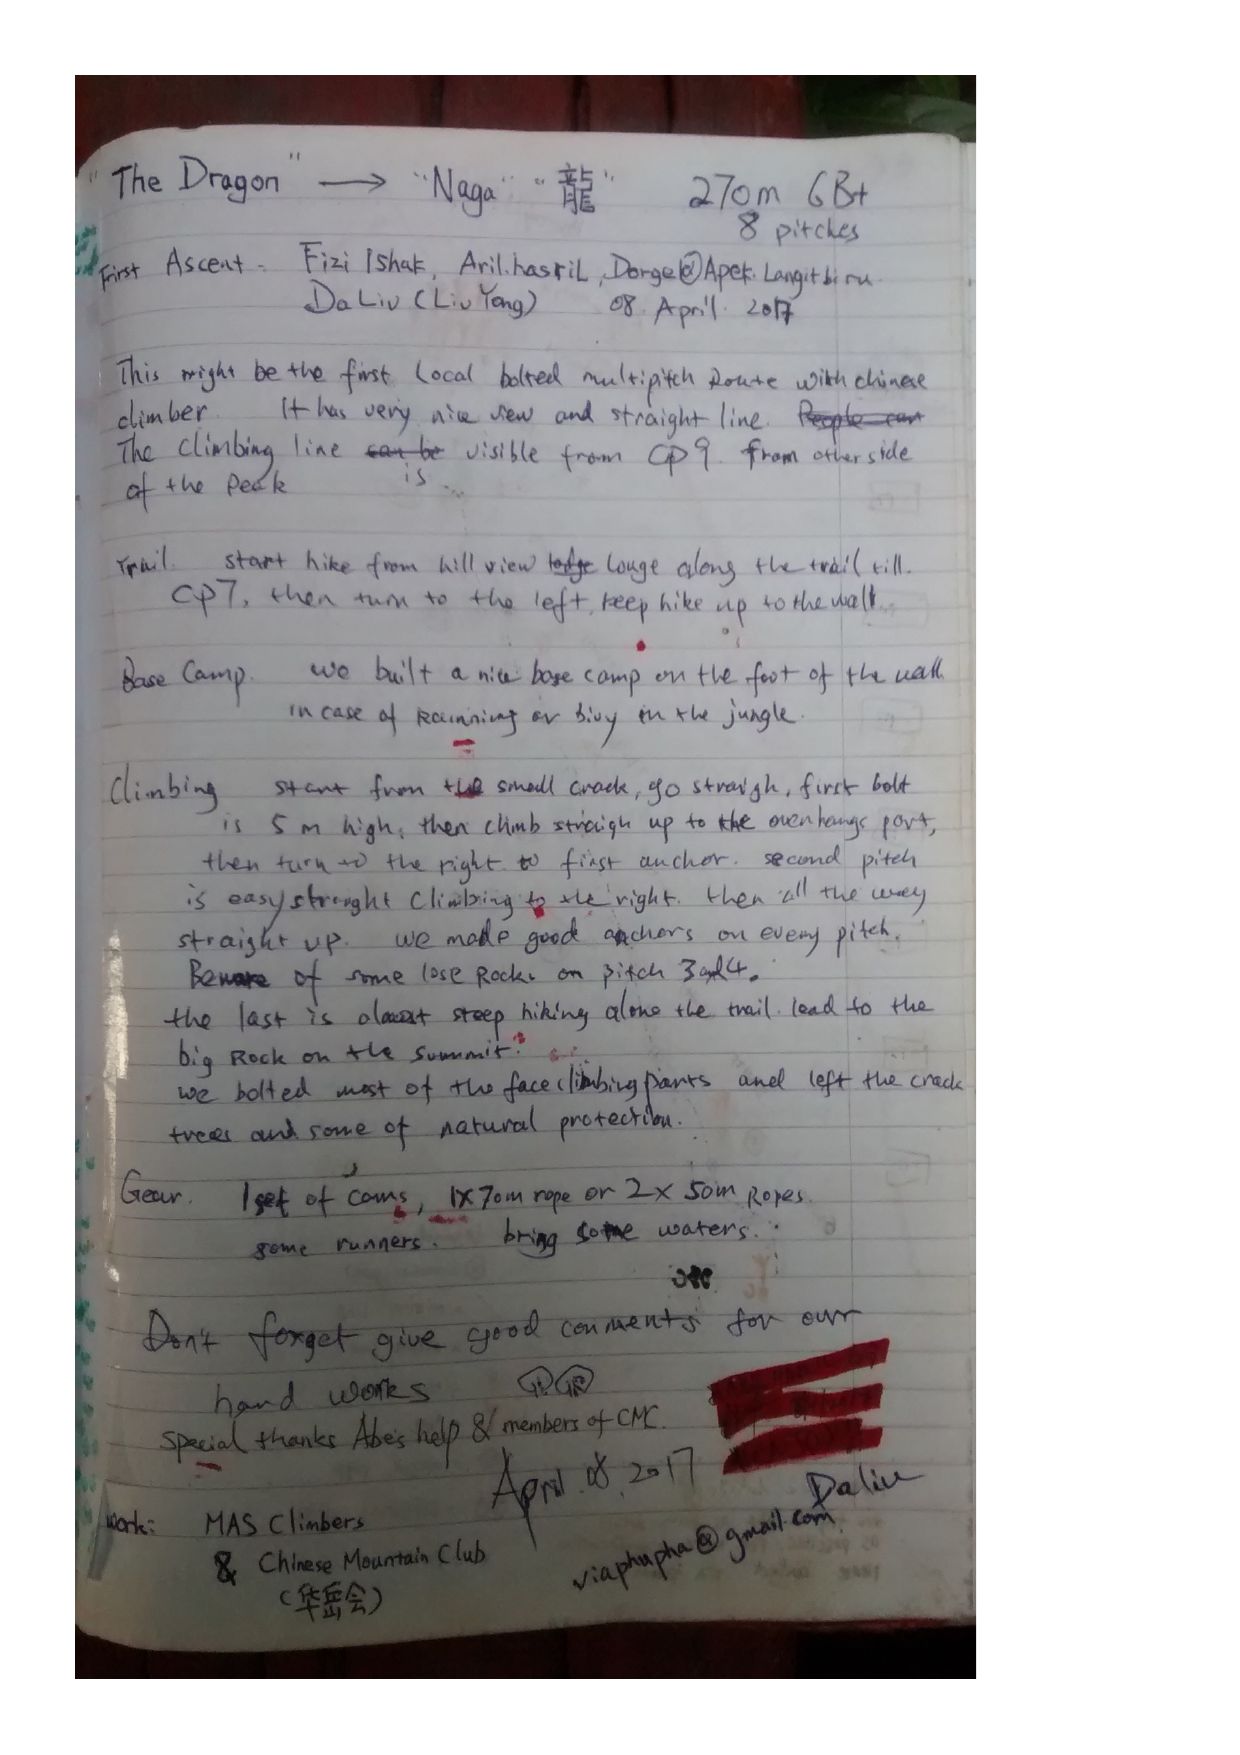 "The Dragon" → "Naga" "龍" 270m 6B+
8 pitches
First Ascent - Fizi Ishak, Aril.hasril, Dorge@Apek.Langitbiru
DaLiu (Liu Yong) 08. April. 2017
This might be the first Local bolted multipitch Route with chinese
climber. It has very nice view and straight line. People can
The climbing line can be visible from CP9. from other side
is
of the Peak
Trail. start hike from hill view lodge louge along the trail till.
CP7, then turn to the left, keep hike up to the wall.
Base Camp. we built a nice base camp on the foot of the wall.
in case of Rainning or bivy in the jungle.
Climbing start from the small crack, go straigh, first bolt
is 5 m high, then climb straigh up to the overhangs part,
then turn to the right to first anchor. second pitch
is easy straight climbing to the right. then all the way
straight up. we made good anchors on every pitch.
Beware of some lose Rocks on pitch 3 and 4.
the last is alomst steep hiking alone the trail. lead to the
big Rock on the summit.
we bolted most of the face climbing parts and left the crack
trees and some of natural protection.
Gear. 1 set of cams, 1x70m rope or 2x 50m Ropes.
some runners. bring some waters.
Don't forget give good comments for our
hard works
special thanks Abe's help & members of CMC.
April.08.2017
Daliu
work: MAS Climbers
viaphupha@gmail.com
& Chinese Mountain Club
(华岳会)